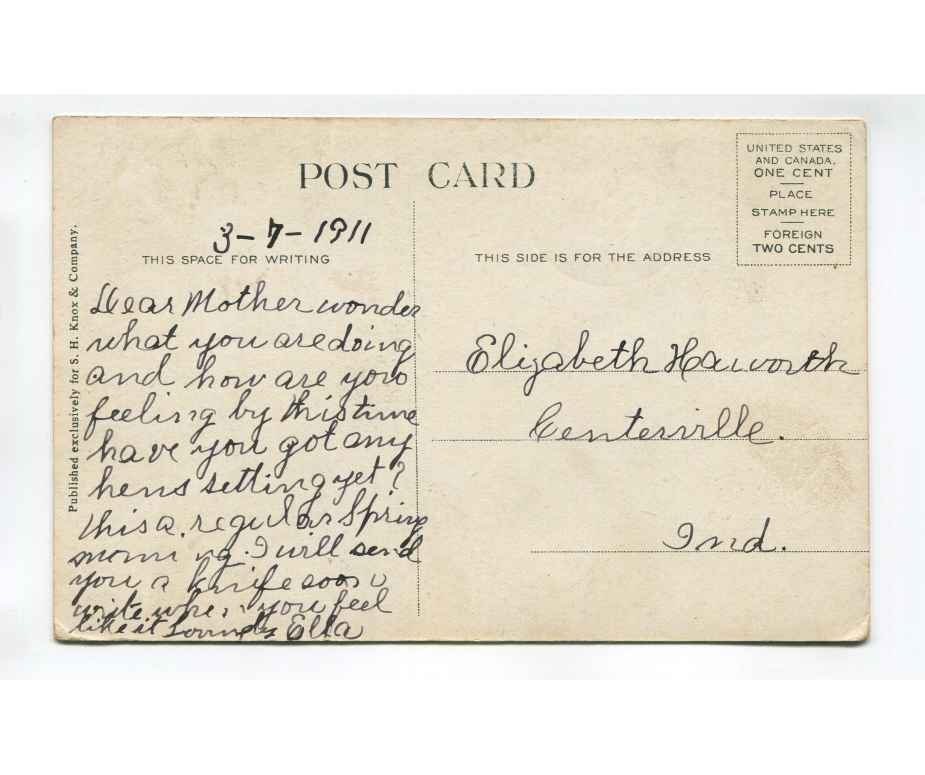 POST CARD
UNITED STATES
AND CANADA,
ONE CENT
PLACE
STAMP HERE
FOREIGN
TWO CENTS
3-7-1911
THIS SPACE FOR WRITING
THIS SIDE IS FOR THE ADDRESS
Published exclusively for S. H. Knox & Company.
Dear Mother wonder
what you are doing
and how are you
feeling by this time
have you got any
hens setting yet?
this a regular Spring
morning. I will send
you a knife soon
write when you feel
like it Ella
Elizabeth Haworth
Centerville.
Ind.